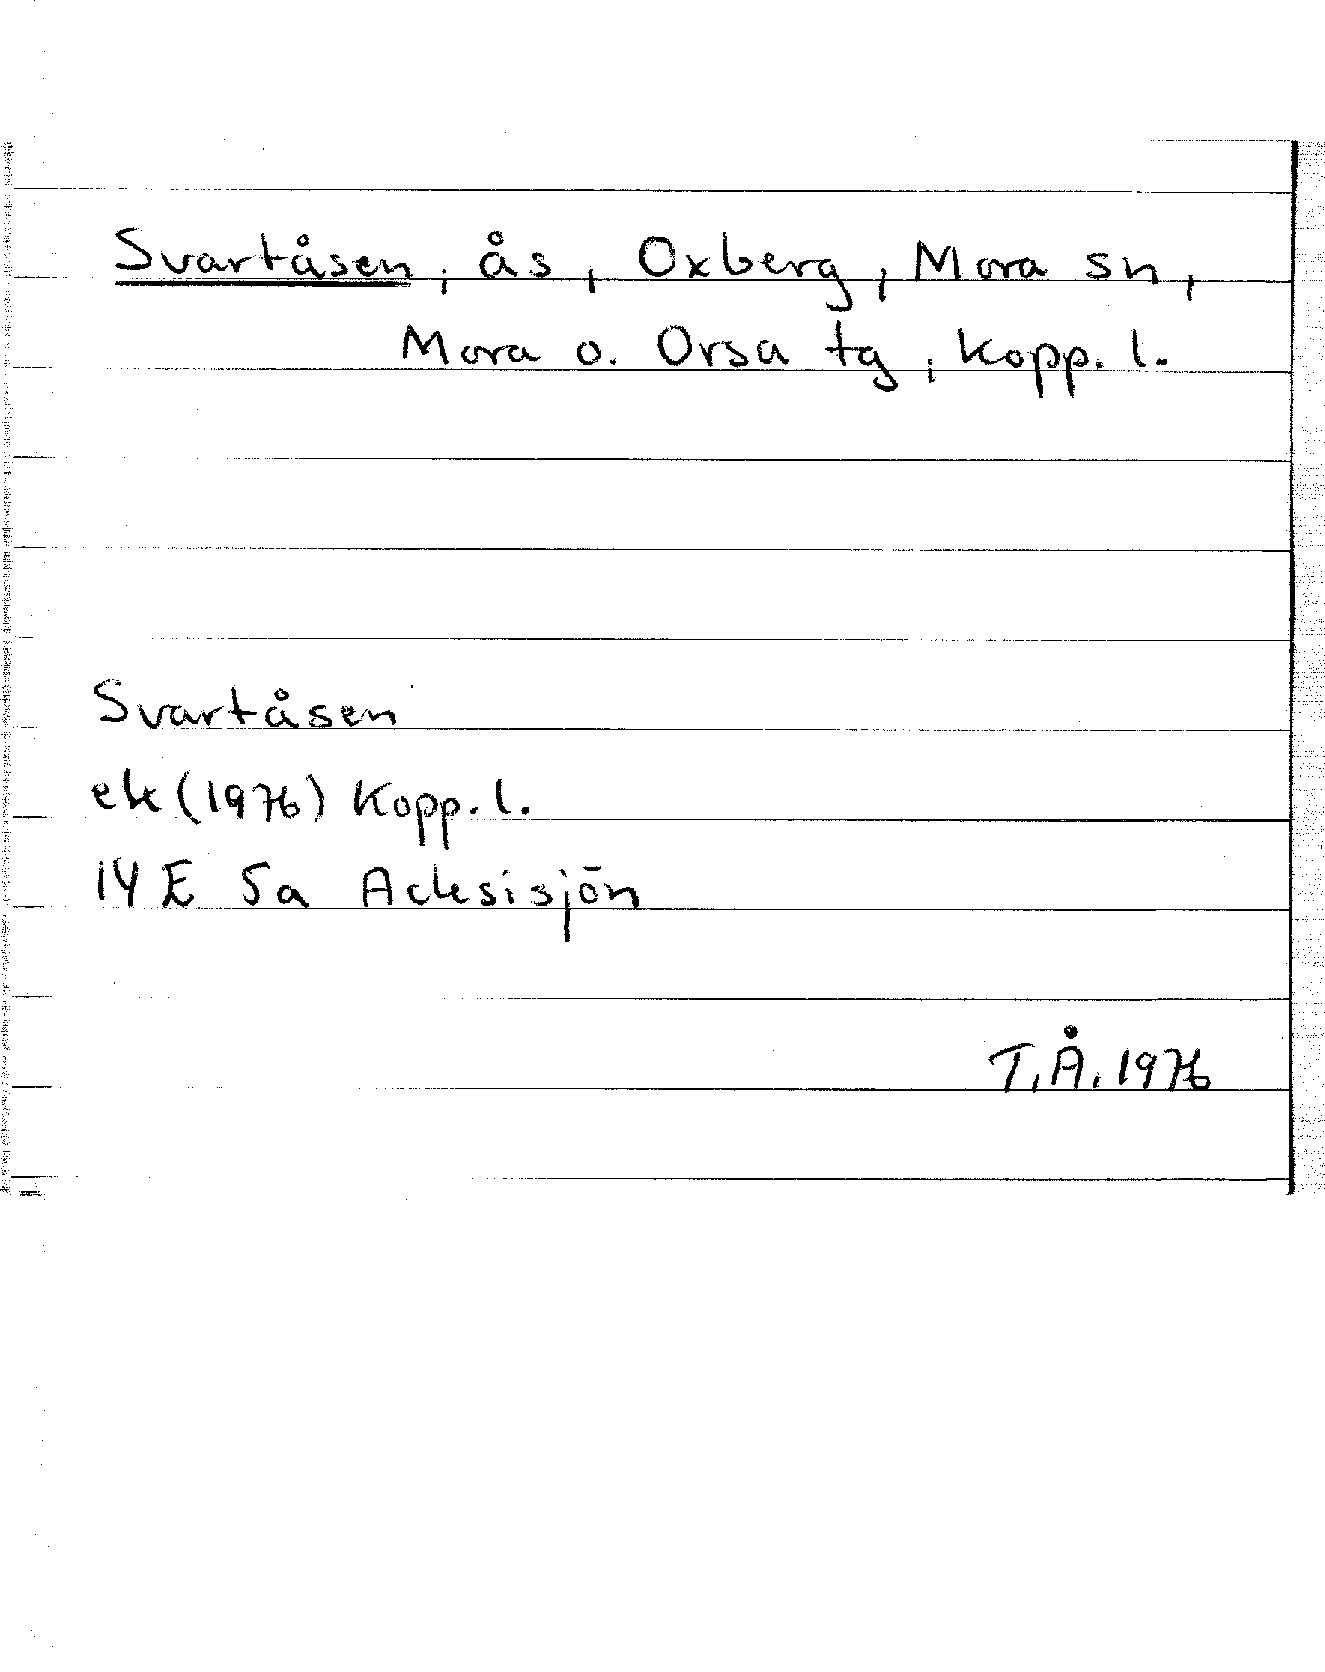 Svartåsen, ås, Oxberg, Mora sn,
Mora o. Orsa tg, Kopp. l.
Svartåsen
ek (1976) Kopp. l.
14 E 5a Acksisjön
T.Å. 1976